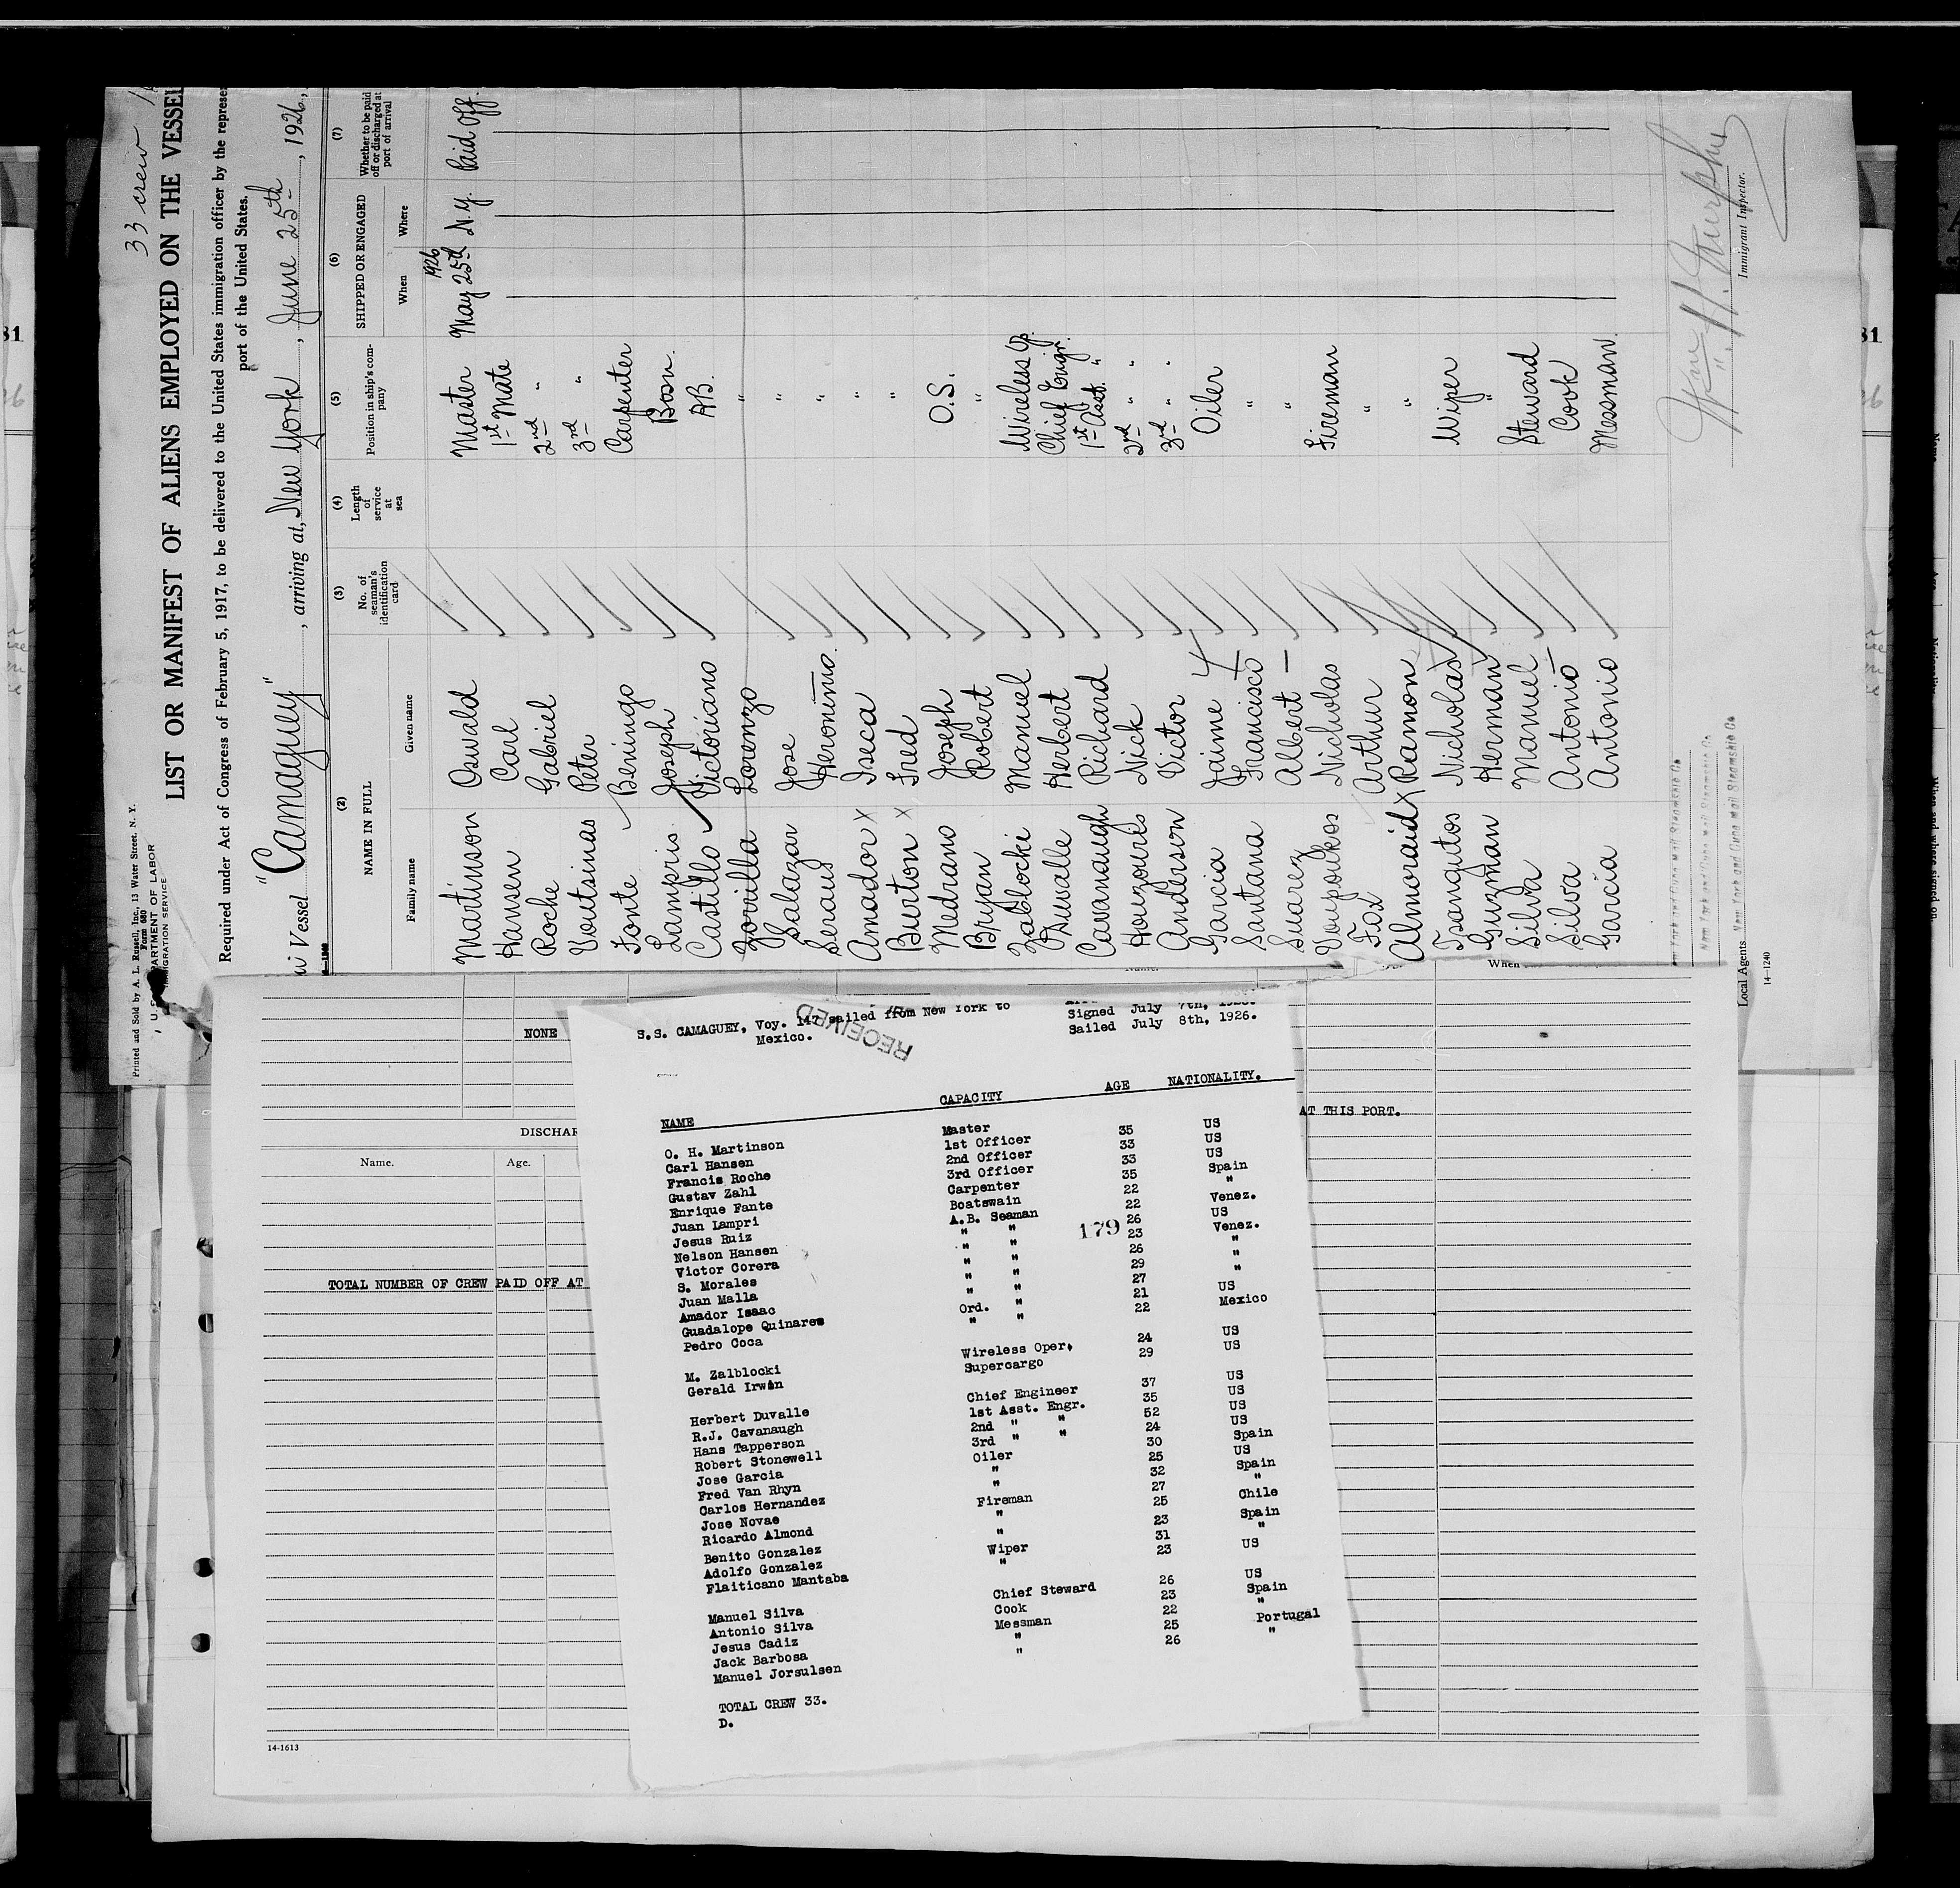 33 crew
Printed and Sold by A. L. Russell, Inc., 13 Water Street, N. Y.
Form 680
U. S. DEPARTMENT OF LABOR
IMMIGRATION SERVICE
LIST OR MANIFEST OF ALIENS EMPLOYED ON THE VESSEL
Required under Act of Congress of February 5, 1917, to be delivered to the United States immigration officer by the represe
port of the United States.
Vessel "Camaguey", arriving at, New York, June 25th, 1926,
(2) (3) (4) (5) (6) (7)
NAME IN FULL No. of seaman's identification card Length of service at sea Position in ship's company SHIPPED OR ENGAGED Whether to be paid off or discharged at port of arrival
Family name Given name When Where
Martinson Oswald Master May 25th 1926 N.Y. Paid Off.
Hansen Carl 1st Mate
Roche Gabriel 2nd "
Voutsinas Peter 3rd "
Fonte Beningo Carpenter
Lampris Joseph Bosn.
Castillo Victoriano AB.
Zorilla Lorenzo "
Salazar Jose "
Seraus Heronimo "
Amador x Iseca "
Burton x Fred "
Medrano Joseph O.S.
Bryan Robert "
Zablocki Manuel Wireless Op.
Duvalle Herbert Chief Engr.
Cavanaugh Richard 1st Asst. "
Houzouris Nick 2nd " "
Anderson Victor 3rd " "
Garcia Jaime Oiler
Santana Francisco "
Suarez Albert "
Voupoukos Nicholas Fireman
Fox Arthur "
Almoraid x Ramon "
Tsangutos Nicholas Wiper
Guzman Herman "
Silva Manuel Steward
Silva Antonio Cook
Garcia Antonio Messman.
Wm. H. Murphy
Immigrant Inspector.
New York and Cuba Mail Steamship Co
New York and Cuba Mail Steamship Co
Local Agents New York and Cuba Mail Steamship Co
14—1240
When
NONE
DISCHAR
AT THIS PORT.
Name. Age.
TOTAL NUMBER OF CREW PAID OFF AT
14-1613
RECEIVED
S.S. CAMAGUEY, Voy. 147 sailed from New York to
Mexico.
Signed July 7th, 1926.
Sailed July 8th, 1926.
NAME CAPACITY AGE NATIONALITY.
O. H. Martinson Master 35 US
Carl Hansen 1st Officer 33 US
Francis Roche 2nd Officer 33 US
Gustav Zahl 3rd Officer 35 Spain
Enrique Fante Carpenter 22 "
Juan Lampri Boatswain 22 Venez.
Jesus Ruiz A.B. Seaman 26 US
Nelson Hansen " " 179 23 Venez.
Victor Corera " " 26 "
S. Morales " " 29 "
Juan Malla " " 27
Amador Isaac " " 21 US
Guadalope Quinares Ord. " 22 Mexico
Pedro Coca " "
M. Zalblocki Wireless Oper. 24 US
Gerald Irwin Supercargo 29 US
Herbert Duvalle Chief Engineer 37 US
R.J. Cavanaugh 1st Asst. Engr. 35 US
Hans Tapperson 2nd " " 52 US
Robert Stonewell 3rd " " 24 US
Jose Garcia Oiler 30 Spain
Fred Van Rhyn " 25 US
Carlos Hernandez " 32 Spain
Jose Novae Fireman 27 "
Ricardo Almond " 25 Chile
Benito Gonzalez " 23 Spain
Adolfo Gonzalez Wiper 31 "
Flaiticano Mantaba " 23 US
Manuel Silva Chief Steward 26 US
Antonio Silva Cook 23 Spain
Jesus Cadiz Messman 22 "
Jack Barbosa " 25 Portugal
Manuel Jorsulsen " 26 "
TOTAL CREW 33.
D.